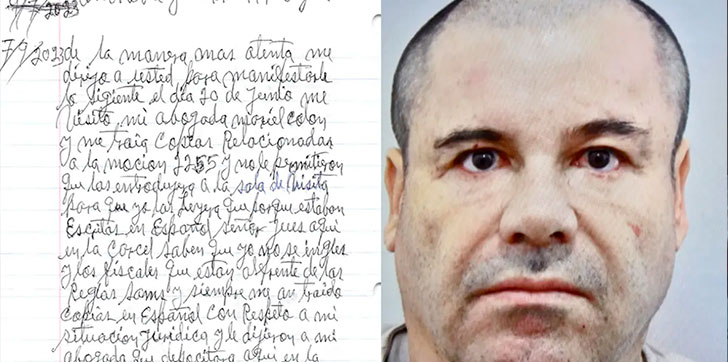 2023
7/9/2023 de la manera mas atenta me
dirijo a usted para manifestarle
lo sigiente el dia 20 de Junio me
visito, mi abogada mariel colon
y me traia copias Relacionadas
a la mocion 2255 y no le permitieron
que las introdujera a la sala de visita
para que yo las leyera que porque estaban
Escritas en Español señor Jues aqui
en la Carcel saben que yo no se ingles
y los fiscales que estan al frente de las
Reglas Sams y siempre me an traido
copias en Español con Respeto a mi
situacion Juridica y le dijeron a mi
abogada que
aqui en la